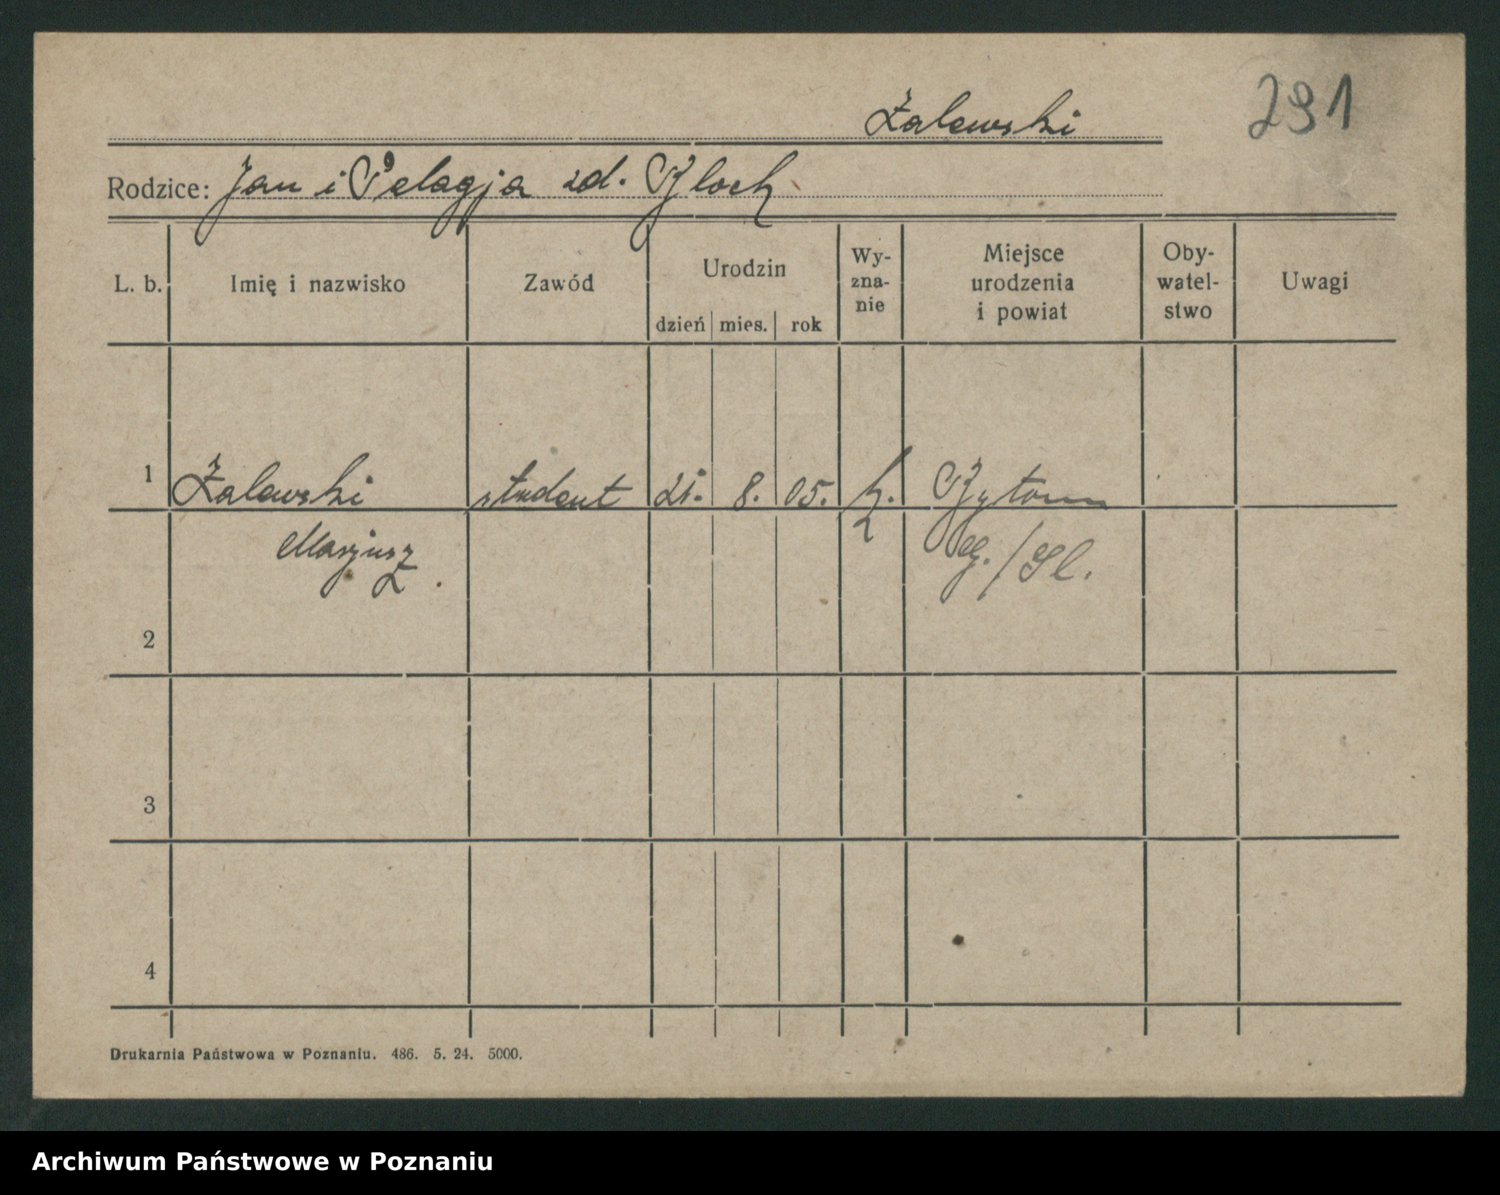 Zalewski
291
Rodzice: Jan i Pelagja zd. Kloch
L. b. Imię i nazwisko Zawód Urodzin dzień mies. rok Wyzna-nie Miejsce urodzenia i powiat Oby-watel-stwo Uwagi
1 Zalewski student 21. 8. 05. k. Bytom
Marjusz G./Śl.
2
3
4
Drukarnia Państwowa w Poznaniu. 486. 5. 24. 5000.
Archiwum Państwowe w Poznaniu